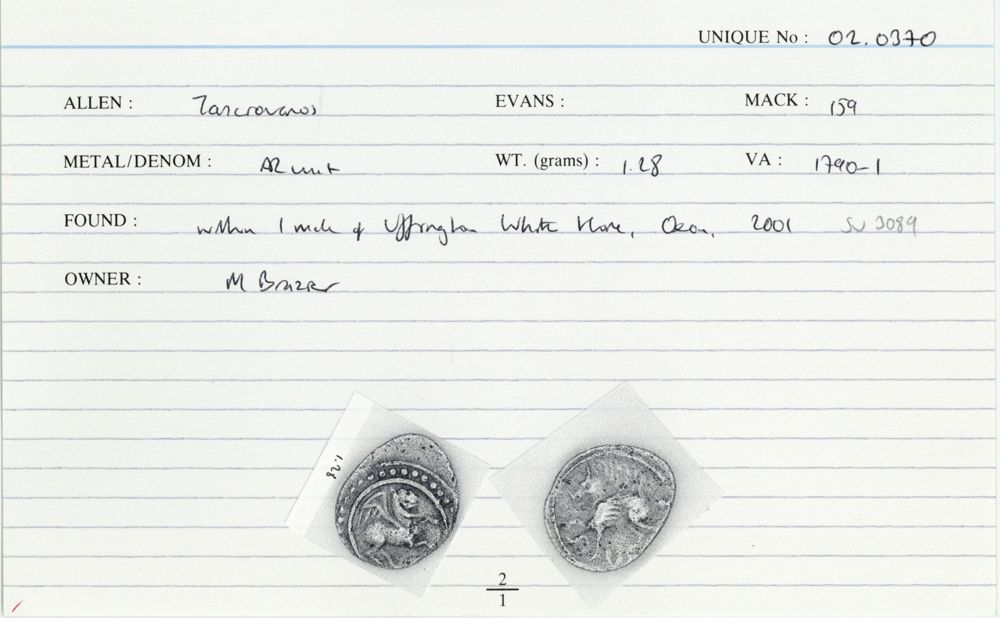 UNIQUE No : 02.0370
ALLEN : Tasciovanos EVANS : MACK : 159
METAL/DENOM : AR unit WT. (grams) : 1.28 VA : 1790-1
FOUND : within 1 mile of Uffington White Horse, Oxon, 2001 SU 3089
OWNER : M Brazier
1.28
2
1